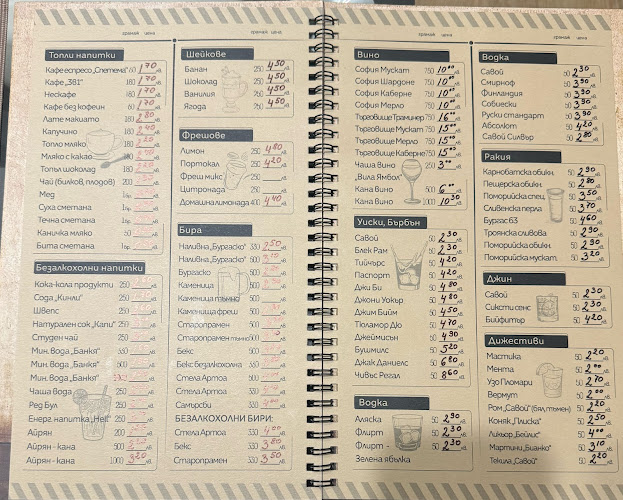 грамаж цена
Топли напитки
Кафе еспресо „Спетема“ 60 1 70 лв.
Кафе „3в1“ 180 1 70 лв.
Нескафе 180 1 70 лв.
Кафе без кофеин 60 1 70 лв.
Лате макиато 180 2 80 лв.
Капучино 180
Топло мляко
Мляко с какао
Топъл шоколад 180
Чай (билков, плодов) 200
Мед 1 бр.
Суха сметана 1 бр.
Течна сметана 1 бр.
Каничка мляко 50
Бита сметана 1 бр.
Безалкохолни напитки
Кока-кола продукти 250
Сода „Кинли“ 250
Швепс 250
Натурален сок „Капи“ 250
Студен чай 250
Мин. вода „Банкя“ 330
Мин. вода „Банкя“ 500
Мин. вода „Банкя“
Чаша вода 200
Ред Бул 250
Енерг. напитка „Hell“ 250
Айрян 250
Айрян - кана 500
Айрян - кана 1000 3 20 лв.
грамаж цена
Шейкове
Банан 250 4 50 лв.
Шоколад 250 4 50 лв.
Ванилия 250 4 50 лв.
Ягода 250 4 50 лв.
Фрешове
Лимон 250 4 80 лв.
Портокал 250 4 20 лв.
Фреш микс 250
Цитронада 250
Домашна лимонада 400 4 40 лв.
Бира
Наливна „Бургаско“ 330 2 50 лв.
Наливна „Бургаско“ 500 3 10 лв.
Бургаско
Каменица 500
Каменица тъмно 500
Каменица фреш 500
Старопрамен 500
Старопрамен тъмно 500
Бекс 500
Бекс безалкохолна 500
Стела Артоа 500
Стела Артоа 330
Самърсби 330
БЕЗАЛКОХОЛНИ БИРИ:
Стела Артоа 330 4 00 лв.
Бекс 330 3 80 лв.
Старопрамен 330 3 50 лв.
грамаж цена
Вино
София Мускат 750 10 00 лв.
София Шардоне 750 10 00 лв.
София Каберне 750 10 00 лв.
София Мерло 750 10 00 лв.
Търговище Траминер 750 16 00 лв.
Търговище Мускат 750 15 00 лв.
Търговище Мерло 750 15 00 лв.
Търговище Каберне 750 15 00 лв.
Чаша вино 250 3 00 лв.
„Вила Ямбол“
Кана вино 500 6 00 лв.
Кана вино 1000 10 30 лв.
Уиски, Бърбън
Савой 50 2 30 лв.
Блек Рам 50 2 30 лв.
Тийчърс 50 4 20 лв.
Паспорт 50 4 20 лв.
Джи Би 50 4 80 лв.
Джони Уокър 50 4 80 лв.
Джим Бийм 50 4 50 лв.
Тюламор Дю 50 4 70 лв.
Джеймисън 50 4 90 лв.
Бушмилс 50 5 20 лв.
Джак Даниелс 50 6 80 лв.
Чивъс Регал 50 8 60 лв.
Водка
Аляска 50 2 30 лв.
Флирт 50 2 30 лв.
Флирт - 50 2 30 лв.
Зелена ябълка
грамаж цена
Водка
Савой 50 2 30 лв.
Смирноф 50 3 90 лв.
Финландия 50 3 90 лв.
Собиески 50 3 90 лв.
Руски стандарт 50 3 90 лв.
Абсолют 50 4 20 лв.
Савой Силвър 50 2 80 лв.
Ракия
Карнобатска обикн. 50 2 90 лв.
Пещерска обикн. 50 2 80 лв.
Поморийска спец. 50 3 50 лв.
Сливенска перла 50 3 70 лв.
Бургас 63 50 4 60 лв.
Троянска сливова 50 2 90 лв.
Поморийска обикн. 50 2 90 лв.
Поморийска мускат. 50 3 20 лв.
Джин
Савой 50 2 30 лв.
Сиксти сенс 50 2 30 лв.
Бийфийтър 50 4 20 лв.
Дижестиви
Мастика 50 2 20 лв.
Мента 50 2 00 лв.
Узо Пломари 50 2 70 лв.
Вермут 50 2 00 лв.
Ром „Савой“ (бял, тъмен) 50 2 20 лв.
Коняк „Плиска“ 50 2 50 лв.
Ликьор „Бейлис“ 50 4 00 лв.
Мартини „Бианко“ 50 3 10 лв.
Текила „Савой“ 50 2 20 лв.